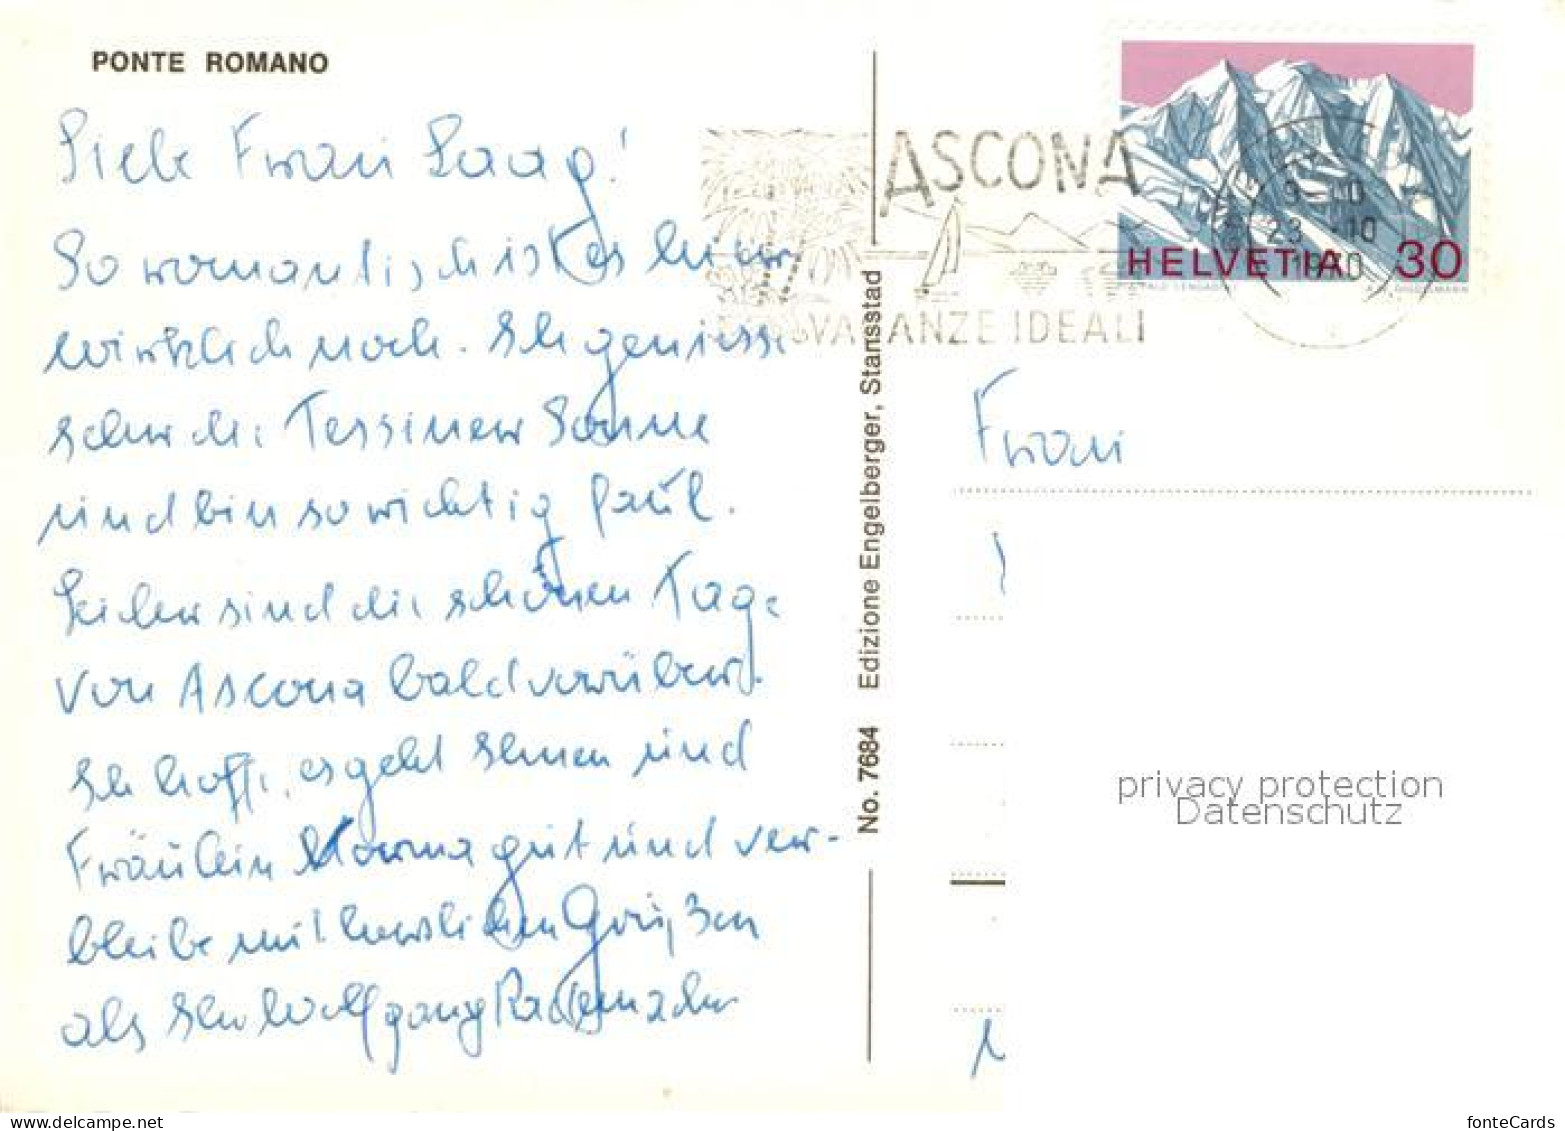 PONTE ROMANO
Liebe Frau Haag!
So romantisch ist es hier
wirklich noch. Ich geniesse
sehr die Tessiner Sonne
und bin so richtig faul.
Leider sind die schönen Tage
von Ascona bald vorüber.
Ich hoffe, es geht Ihnen und
Fräulein Norma gut und ver-
bleibe mit herzlichen Grüßen
als Ihr Wolfgang Rademacher
No. 7684 Edizione Engelberger, Stansstad
ASCONA
VACANZE IDEALI
HELVETIA 30
23.-10
1970
Frau
privacy protection
Datenschutz
fonteCards